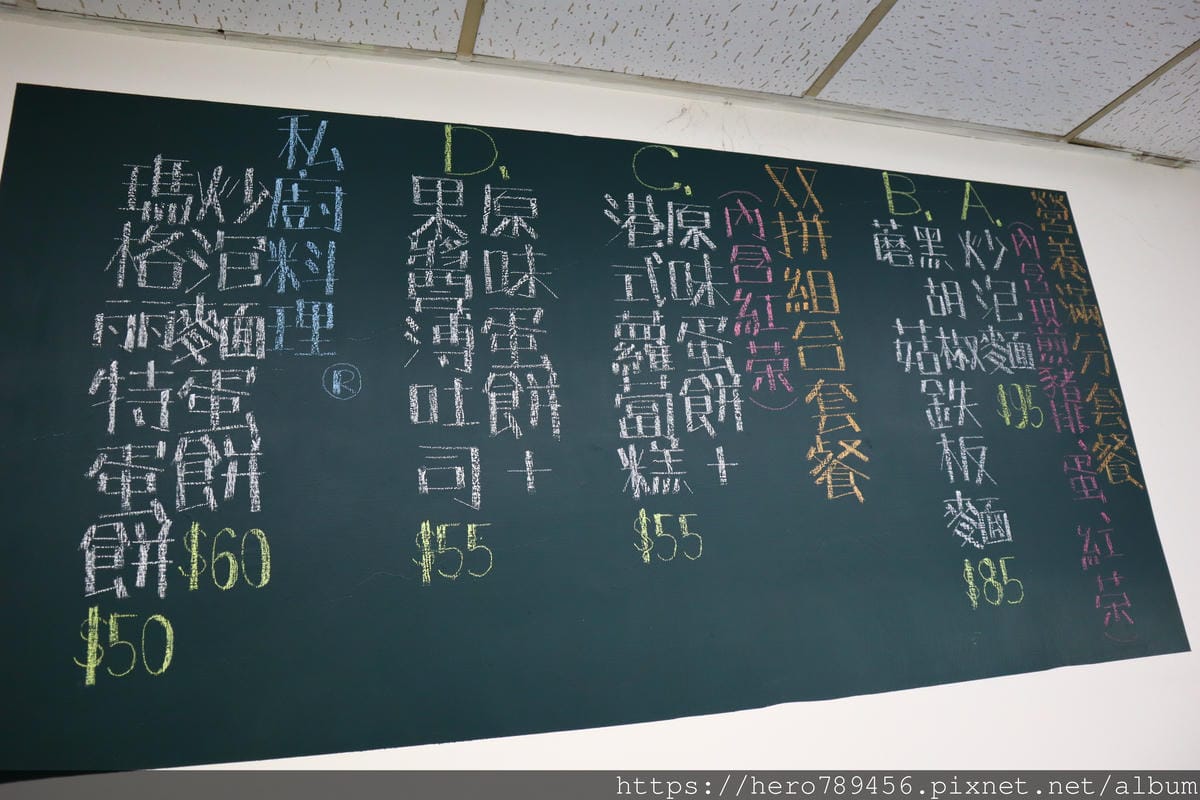 營養滿分套餐
(內含現煎豬排、蛋、紅茶)
A. 炒泡麵 $95
B. 黑胡椒鉄板麵 $85
蘑菇
双拼組合套餐
(內含紅茶)
C. 原味蛋餅+
港式蘿蔔糕 $55
D. 原味蛋餅+
果醬薄吐司 $55
私廚料理®
炒泡麵蛋餅 $60
瑪格丽特蛋餅 $50
https://hero789456.pixnet.net/album